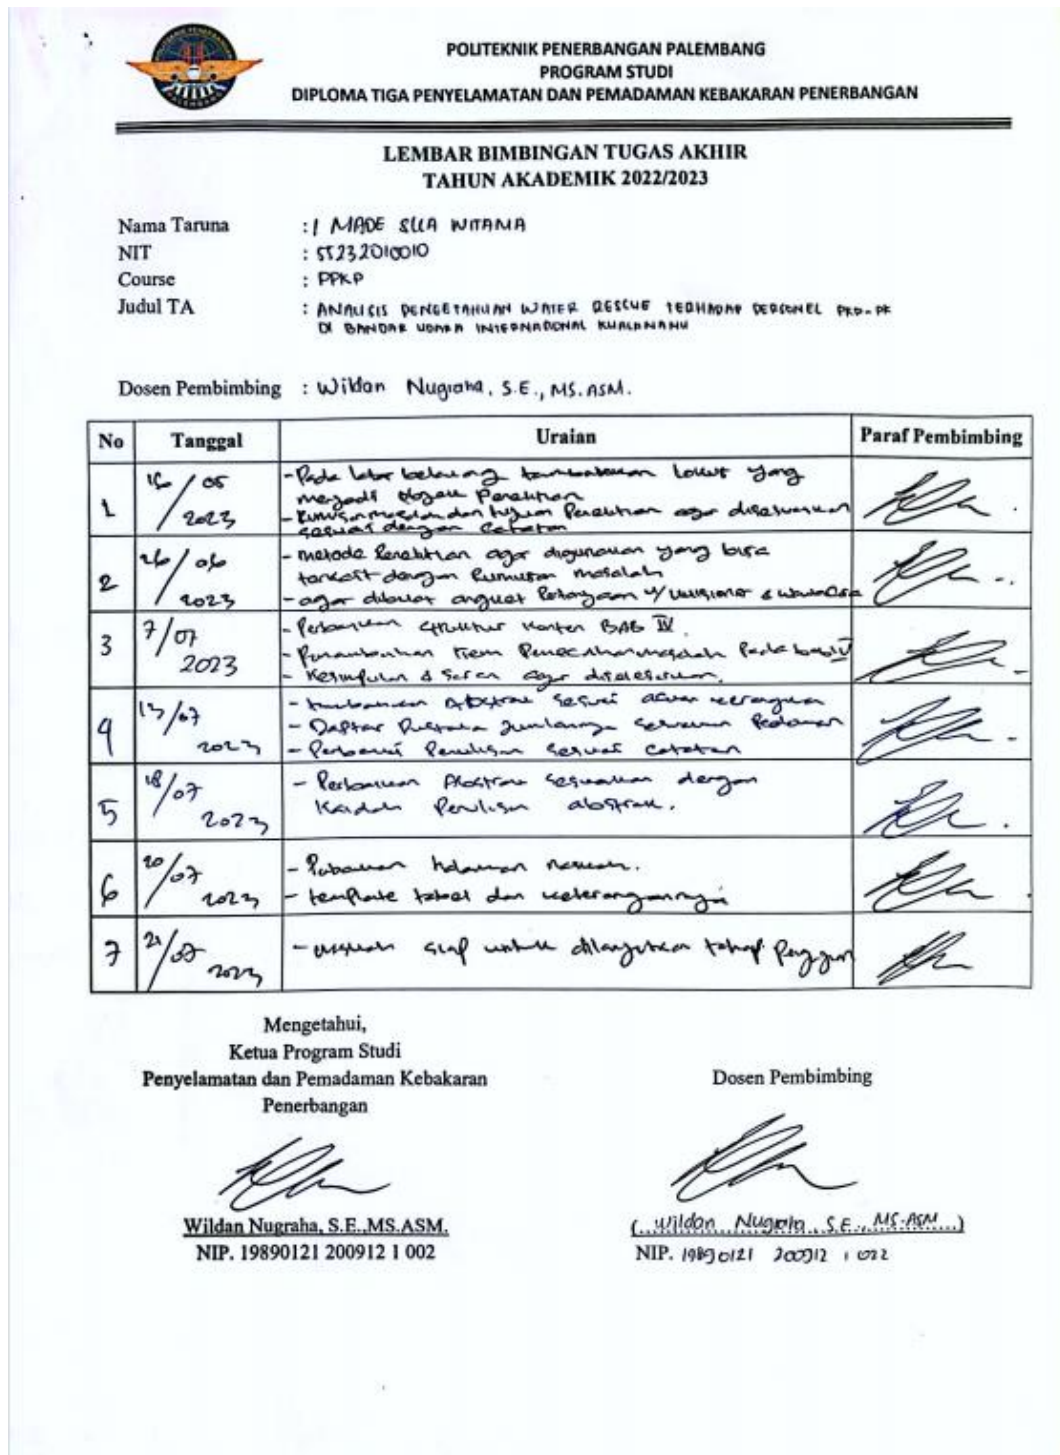 POLITEKNIK PENERBANGAN PALEMBANG
PROGRAM STUDI
DIPLOMA TIGA PENYELAMATAN DAN PEMADAMAN KEBAKARAN PENERBANGAN
LEMBAR BIMBINGAN TUGAS AKHIR
TAHUN AKADEMIK 2022/2023
Nama Taruna : I MADE WITAMA
NIT : 55232010010
Course : PPKP
Judul TA : ANALISIS PENGETAHUAN WATER RESCUE TERHADAP PERSONEL PKP-PK
DI BANDAR UDARA INTERNASIONAL KUALANAMU
Dosen Pembimbing : Wildan Nugraha, S.E., MS.ASM.
No Tanggal Uraian Paraf Pembimbing
1 /05 2023 - Pada latar belakang tambahkan lokus yang
menjadi objek Penelitian
- Rumusan masalah dan tujuan Penelitian agar disesuaikan
sesuai dengan Catatan
2 26/06 2023 - metode Penelitian agar digunakan yang bisa
terkait dengan Rumusan masalah
- agar dibuat Pertanyaan
3 7/07 2023 - Perbaikan struktur konten BAB IV.
- item Pemecahan masalah Pada bab IV
- Kesimpulan & Saran agar
4 13/07 2023 - Abstrak sesuai
- Daftar Pustaka Jumlahnya Pedoman
- Perbaiki Penulisan sesuai catatan
5 18/07 2023 - Perbaikan Abstrak sesuaikan dengan
Kaidah Penulisan abstrak.
6 20/07 2023 - Perbaikan halaman naskah.
- template tabel dan keterangannya
7 21/07 2023 - siap untuk dilanjutkan tahap
Mengetahui,
Ketua Program Studi
Penyelamatan dan Pemadaman Kebakaran
Penerbangan
Dosen Pembimbing
Wildan Nugraha, S.E.,MS.ASM.
NIP. 19890121 200912 1 002
(Wildan Nugraha, S.E., MS.ASM)
NIP. 19890121 200912 1 022